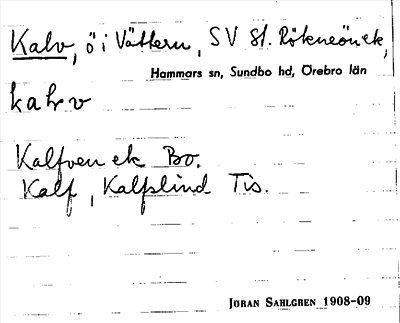 Kalv, ö i Vättern, SV St. Rökneön ek,
Hammars sn, Sundbo hd, Örebro län
kalv
Kalfven ek Bo.
Kalf, Kalfslind Tis.
JÖRAN SAHLGREN 1908-09